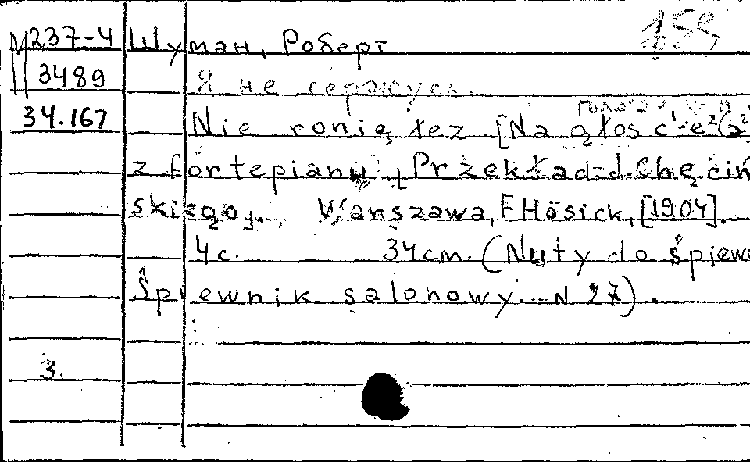 М237-4 Шуман, Роберт 159
3489 Я не сержусь.
34.167 Nie ronię łez. [Na głos c¹-e²(a²)
z fortepianu. Przekład J. Chęciń
skiego]. Warszawa, F. Hösick, [1904].
4 c. 34 cm. (Nuty do śpiewu
Śpiewnik salonowy. N 27).
3.